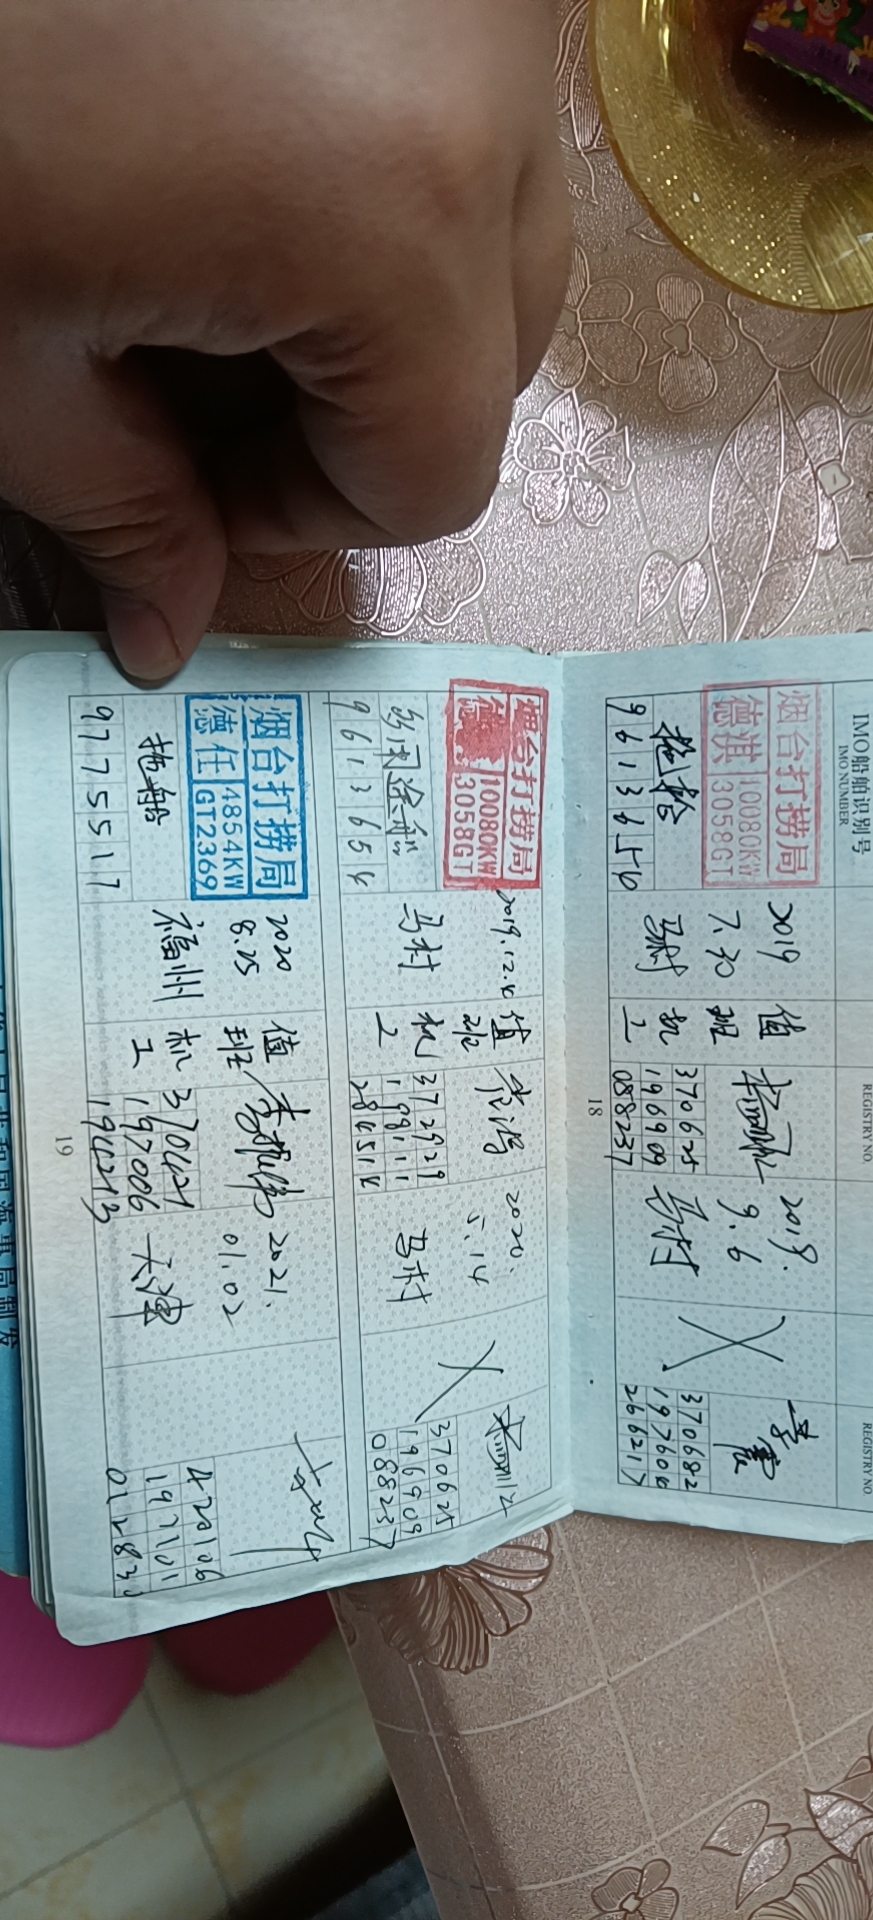 IMO船舶识别号
IMO NUMBER
REGISTRY NO.
REGISTRY NO.
烟台打捞局
德祺
10080KW
3058GT
拖轮
9613654
2019
7.30
马村
值
班
机
工
370625
196909
088237
2019.
9.6
马村
370682
197604
266217
18
烟台打捞局
德
10080KW
3058GT
多用途船
9613654
2019.12.4
马村
值
班
机
工
372929
199111
284514
2020.
5.14
马村
370625
196909
088237
烟台打捞局
德任
4854KW
GT2369
拖船
9775517
2020
8.25
福州
值
班
机
工
370421
197006
194213
2021.
01.02
天津
420106
197101
19